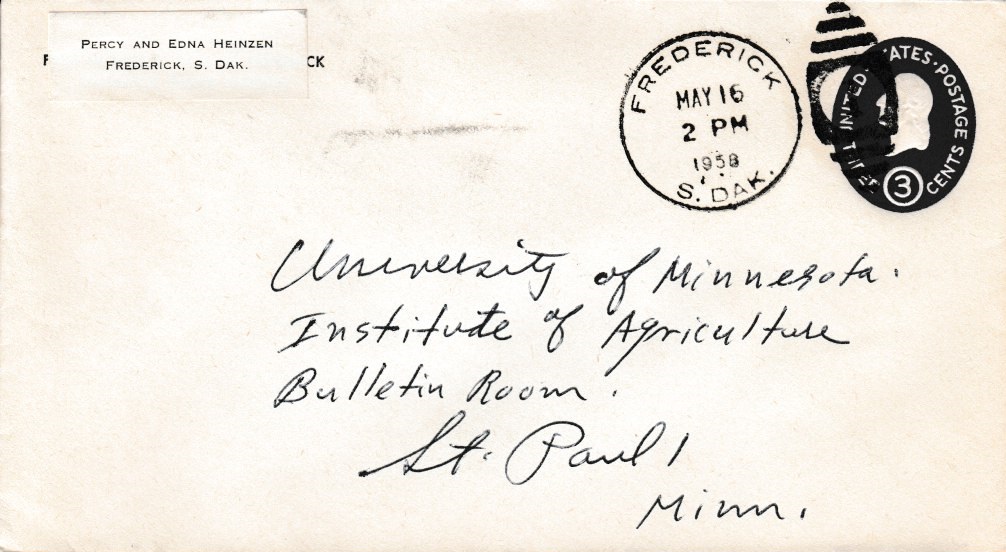 PERCY AND EDNA HEINZEN
FREDERICK, S. DAK.
F
CK
FREDERICK
MAY 16
2 PM
1958
S. DAK.
UNITED STATES POSTAGE
3
CENTS
THREE
University of Minnesota.
Institute of Agriculture
Bulletin Room.
St. Paul 1
Minn.